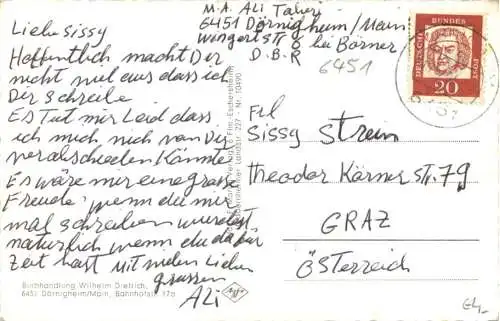 Liebe Sissy
Hoffentlich macht Dir
nicht aus dass ich
Dir schreibe.
Es Tut mir Leid dass
ich mich nich von Dir
verabschieden Könnte
Es wäre mir eine grosse
Freude wenn du mir
mal schreiben wurdest
naturlich wenn du dafür
Zeit hast Mit vielen Lieben
grussen
ALi
Buchhandlung Wilhelm Dietrich,
6451 Dörnigheim/Main, Bahnhofstr. 17a
M.A. ALi Taheri
6451 Dörnigheim/Main
Wingert str 8 bei Börner
D.B.R
6451
DEUTSCHE BUNDESPOST
20
Frl
Sissy Strein
Theodor Körner Str. 79
GRAZ
ÖSTERREICH
Agfa